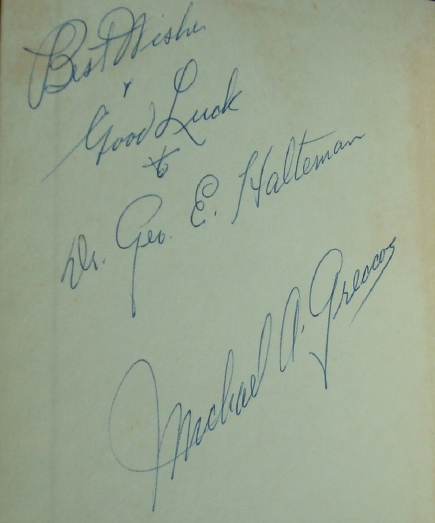 Best Wishes
&
Good Luck
to
Dr. Geo. E. Halteman
Michael A. Grecos